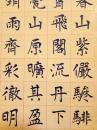 山紫儼驂騑
飛閣流丹下
山原曠其盈
雨霽彩徹明